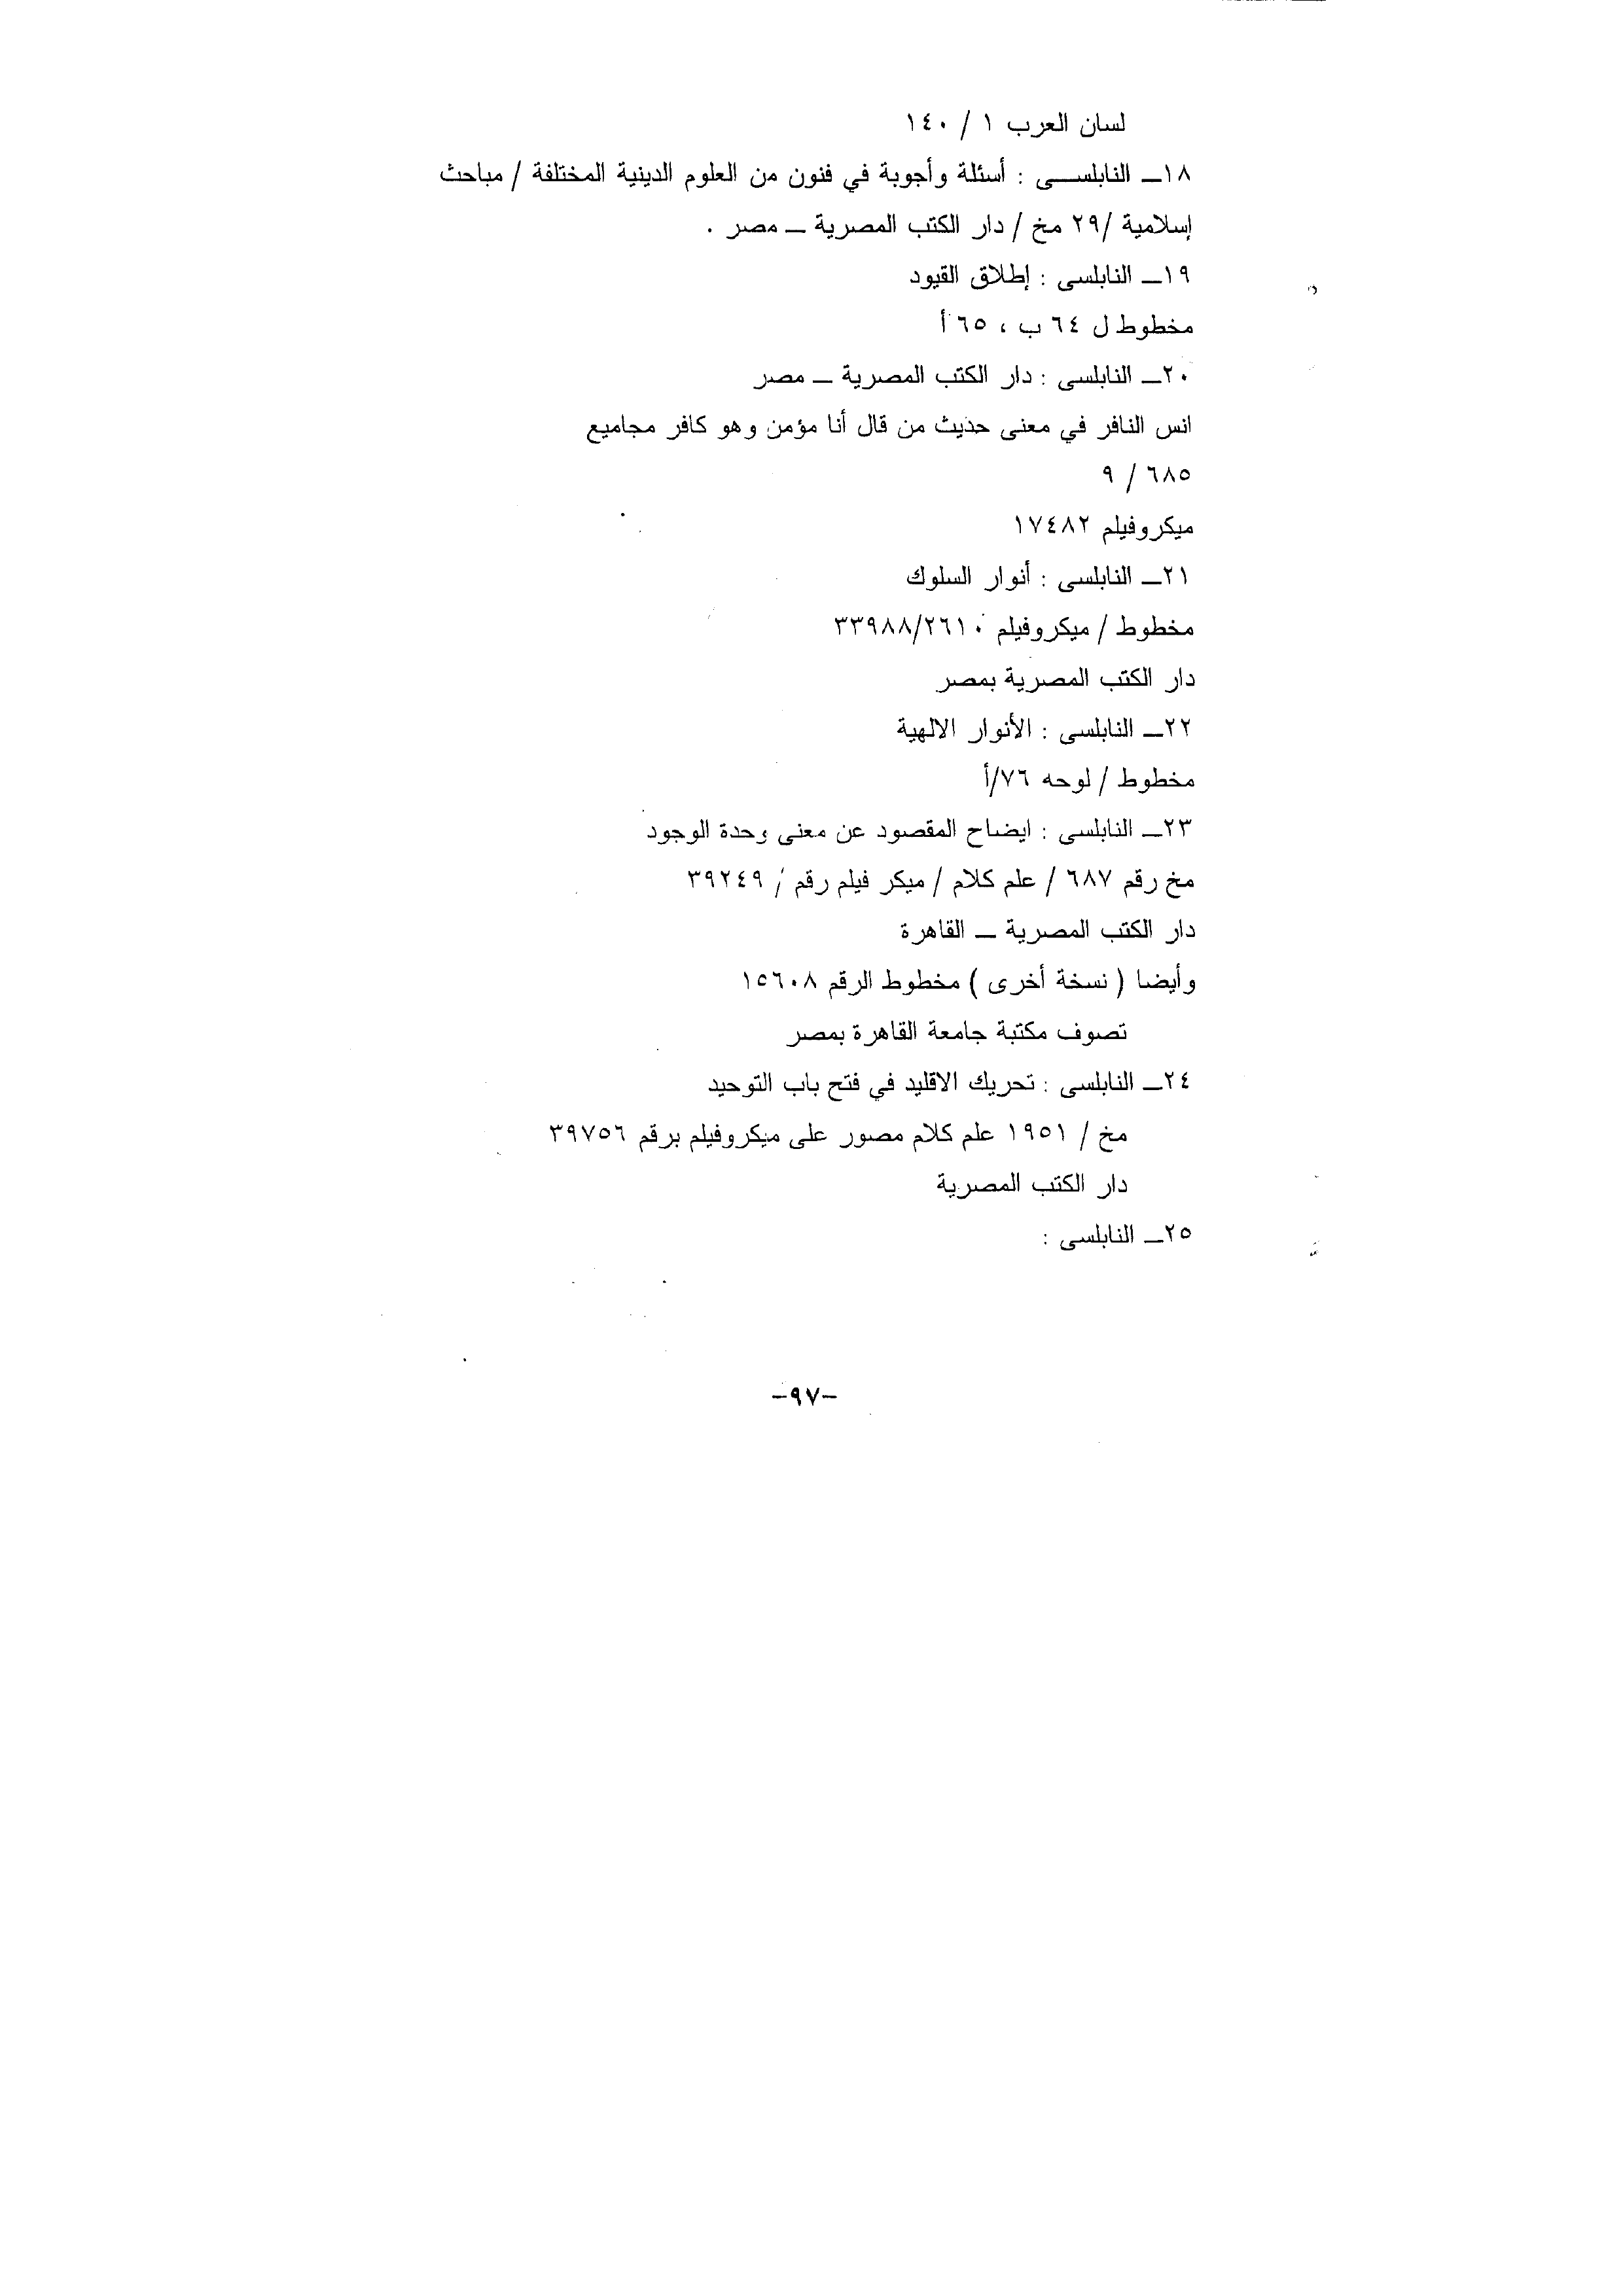 لسان العرب ١ / ١٤٠
١٨ــ النابلســـى : أسئلة وأجوبة في فنون من العلوم الدينية المختلفة / مباحث
إسلامية /٢٩ مخ / دار الكتب المصرية ــ مصر .
١٩ــ النابلسى : إطلاق القيود
مخطوط ل ٦٤ ب ، ٦٥ أ
٢٠ــ النابلسى : دار الكتب المصرية ــ مصر
انس النافر في معنى حديث من قال أنا مؤمن وهو كافر مجاميع
٦٨٥ / ٩
ميكروفيلم ١٧٤٨٢
٢١ــ النابلسى : أنوار السلوك
مخطوط / ميكروفيلم ٣٣٩٨٨/٢٦١٠
دار الكتب المصرية بمصر
٢٢ــ النابلسى : الأنوار الالهية
مخطوط / لوحه ٧٦/أ
٢٣ــ النابلسى : ايضاح المقصود عن معنى وحدة الوجود
مخ رقم ٦٨٧ / علم كلام / ميكر فيلم رقم / ٣٩٢٤٩
دار الكتب المصرية ــ القاهرة
وأيضا ( نسخة أخرى ) مخطوط الرقم ١٥٦٠٨
تصوف مكتبة جامعة القاهرة بمصر
٢٤ــ النابلسى : تحريك الاقليد في فتح باب التوحيد
مخ / ١٩٥١ علم كلام مصور على ميكروفيلم برقم ٣٩٧٥٦
دار الكتب المصرية
٢٥ــ النابلسى :
-٩٧-